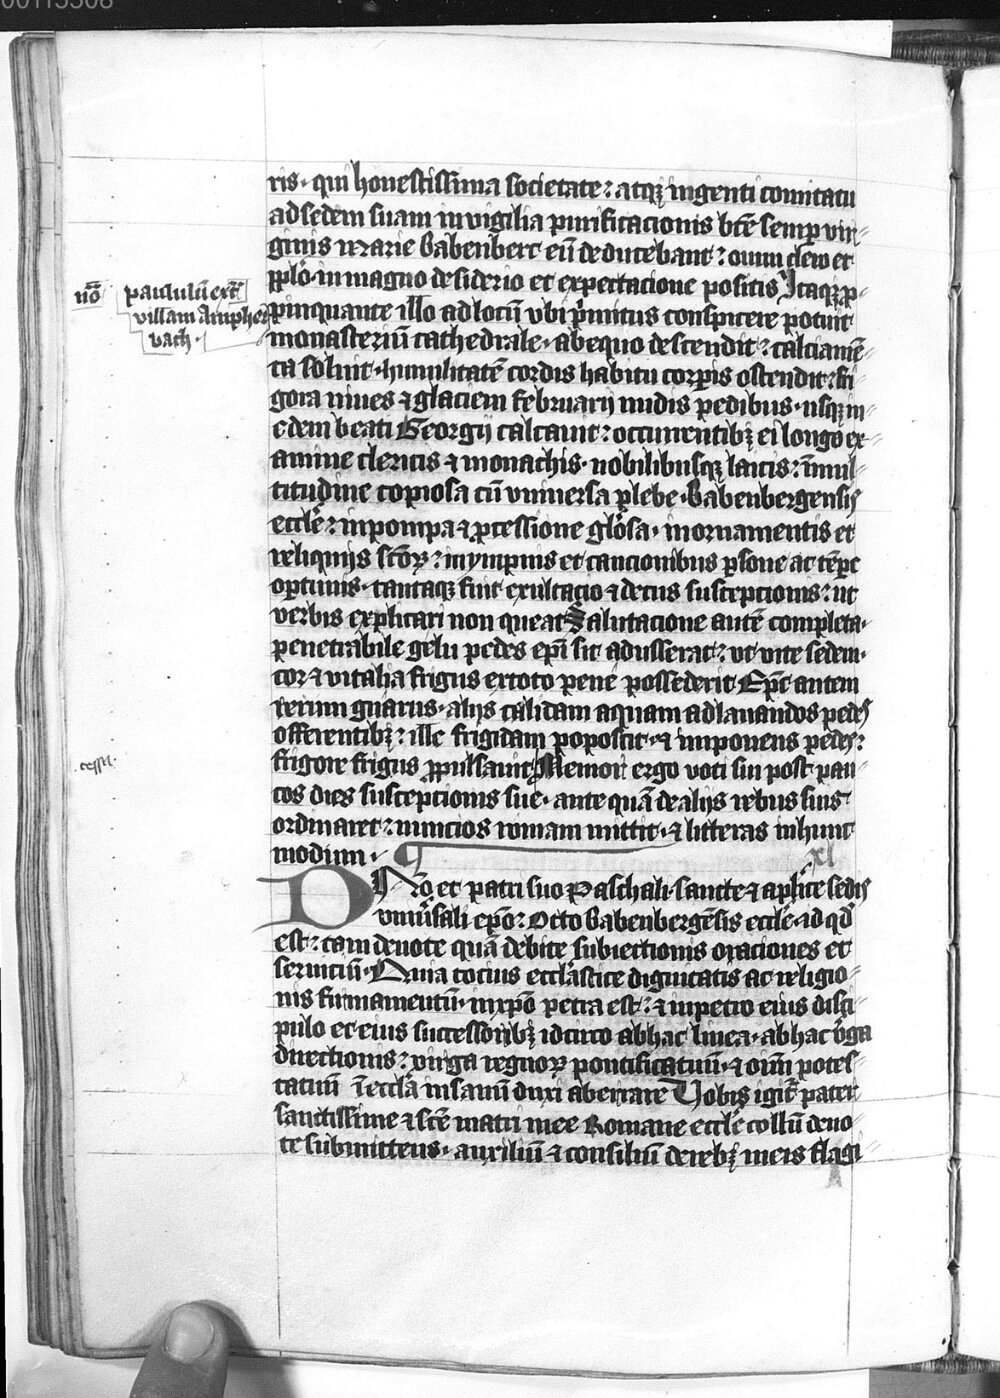 00115508
ris· qui honestissima societate: atqꝫ ingenti comitatu
ad sedem suam in vigilia purificacionis bte᷒ semp vir⸗
ginis marie Babenberc eū deducebant: omni clero et
pplo᷒ in magno desiderio et expectacione positis Itaqꝫ p⸗
pinquante illo ad locū vbi primitus conspicere potuit
monasteriū cathedrale· ab equo descendit: calciamē⸗
ta soluit· humilitatē cordis habitu corpis ostendit: fri
gora niues ⁊ glaciem februarij nudis pedibus· usqꝫ in⸗
edem beati Georgij calcauit: occurrentibꝫ ei longo ex⸗
amine clericis ⁊ monachis· nobilibusqꝫ laicis: īmul⸗
titudine copiosa cū vniuersa plebe· Babenbergensis
eccle᷒: in pompa ⁊ pcessione glosa· in ornamentis et
reliquijs scōꝝ: in ympnis et cancionibus psone ac tēpe
optimis· tantaqꝫ fuit exultacio ⁊ decus suscepcionis: ut
verbis explicari non queat Salutacione autē completa·
penetrabile gelu pedes epi sic adusserat: vt vite sedem·
cor ⁊ vitalia frigus ex toto pene possederit· Epc autem
rerum gnarus· alijs calidam aquam ad lauandos pedes
offerentibꝫ: ille frigidam poposcit· ⁊ imponens pedes:
frigore frigus ppulsauit Memor ergo voti sui post pau⸗
cos dies suscepcionis sue· ante quā de alijs rebus suis
ordinaret: nuncios romam mittit· ⁊ litteras in hunc
modum·
xl
DNo et patri suo Paschali· sancte ⁊ aplice sedis
vniūsali epo: Otto Babenbergēsis eccle᷒· id qd
est: tam deuote quā debite subiectionis oraciones et
seruiciū· Quia tocius ecclastice dignitatis ac religio⸗
nis firmamentū· in xpo petra est: ⁊ in petro eius disci
pulo et eius successoribꝫ idcirco ab hac linea· ab hac v̄ga
directionis: virga regnoꝝ pontificatuū· ⁊ oīm potes⸗
tatum īeccla insanū duxi aberrare Vobis igit pater
sanctissime ⁊ sce᷒ matri mee Romane eccle᷒ collū deuo⸗
te submittens· auxiliū ⁊ consiliū de rebꝫ meis flagi⸗
nō
paululū ext
villam Ampher
bach·